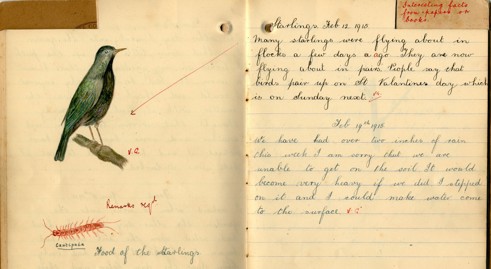 V.G.
Remarks regt
Centipede
Food of the Starlings
Interesting facts
from papers or
books
Starlings Feb 12 1910.
Many starlings were flying about in
flocks a few days ago. They are now
flying about in pairs. People say that
birds pair up on St Valantines day which
is on Sunday next.
Feb 19th 1910
We have had over two inches of rain
this week I am sorry that we are
unable to get on the soil It would
become very heavy if we did. I stepped
on it and I could make water come
to the surface. V.G.